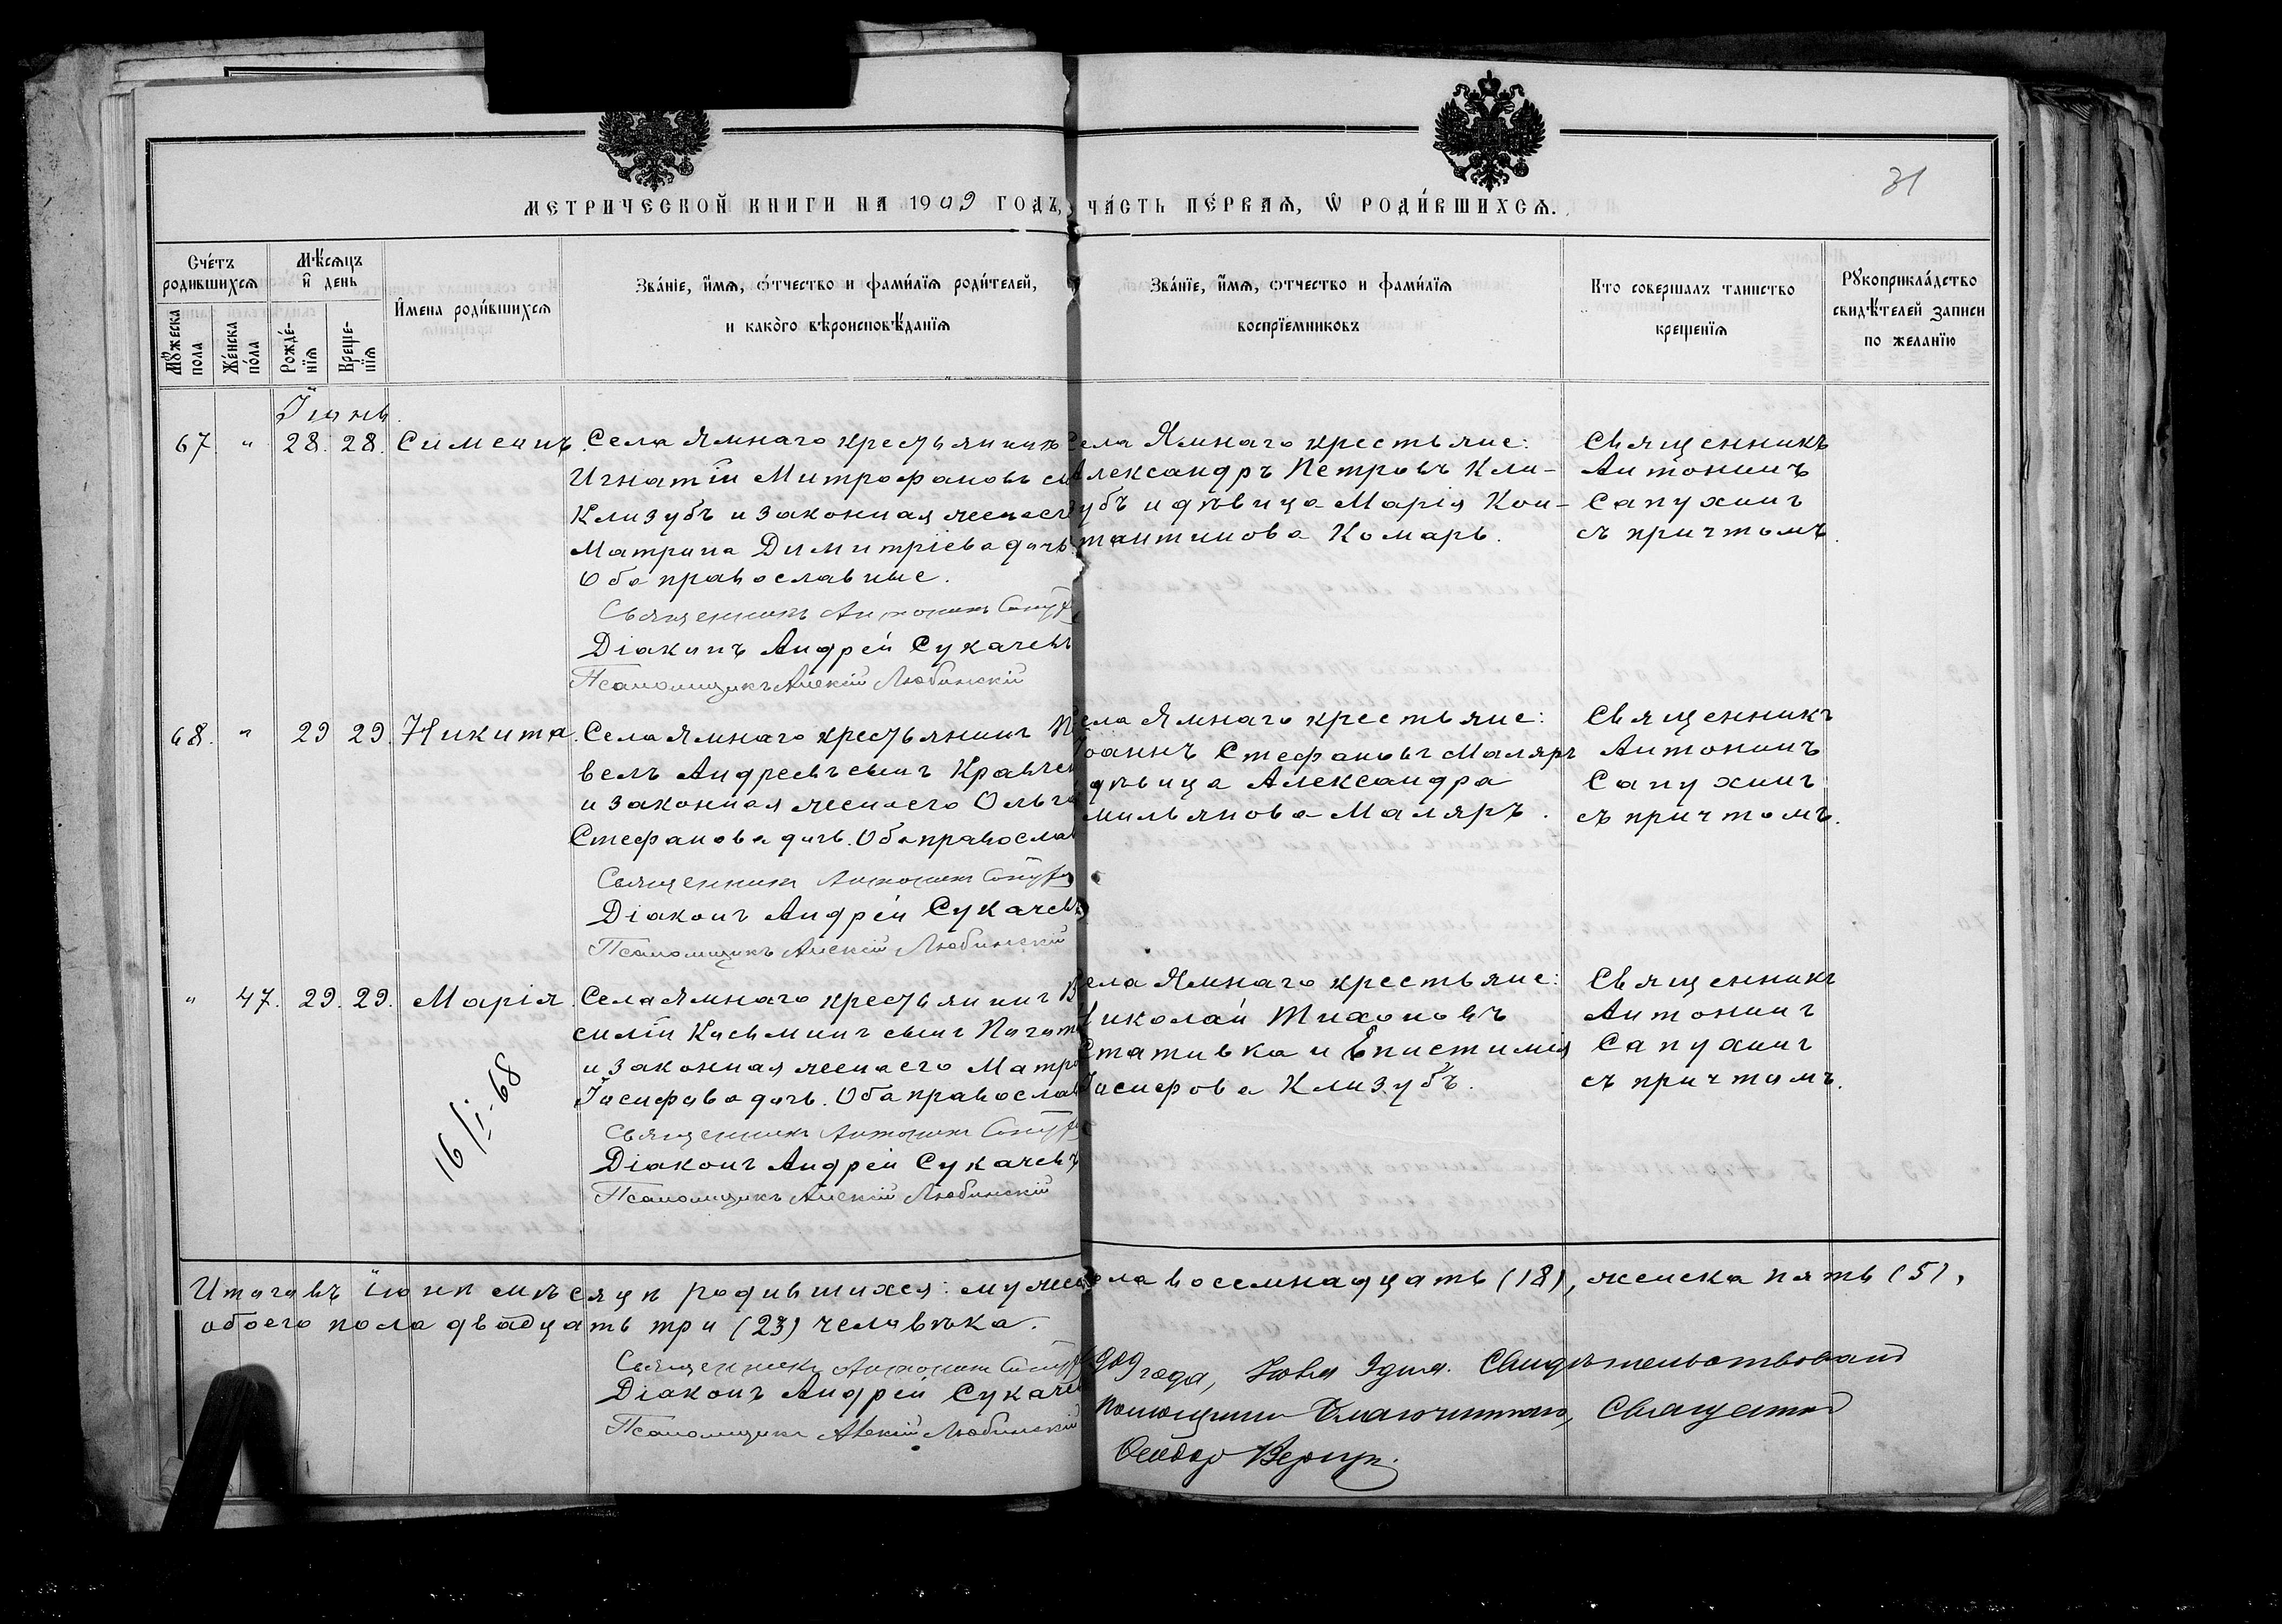 31
МЕТРИЧЕСКОЙ КНИГИ НА 1909 ГОДЪ, ЧА́СТЬ ПЕ́РВАѦ, Ѡ҆ РОДИ́ВШИХСѦ.
Сче́тъ родившихсѧ
Мѣ́сѧцъ и҆ день
И҆мена роди́вшихсѧ
Зва́нїе, и҆́мѧ, ѻ҆́тчество и фами́лїѧ роди́телей,
и како́го вѣроисповѣ́данїѧ
Зва́нїе, и҆́мѧ, ѻ҆тчество и фами́лїѧ
воспрїемниковъ
Кто совершалъ таинство
крещенїѧ
Рꙋкоприкла́дство
свидѣ́телей записи
по желанїю
Мꙋ́жеска пола
Же́нска по́ла
Рожде́-нїѧ
Креще-нїѧ
Іюнь.
67 " 28. 28. Симеонъ. Села Ямнаго крестьянинъ
Игнатій Митрофановъ
Клизубъ и законная жена его
Матрона Димитріева
Оба православные.
Священникъ Антонинъ
Діаконъ Андрей Сукачевъ
Псаломщикъ Алексій Любинскій
Села Ямнаго крестьяне:
Александръ Петровъ Кли-
зубъ и дѣвица Марія Кон-
стантинова Комарь.
Священникъ
Антонинъ
Сапухинъ
съ причтомъ.
68. " 29 29. Никита. Села Ямнаго крестьянинъ
велъ Андреевъ сынъ
и законная жена его Ольга
Стефанова дочь. Оба
Священникъ Антонинъ
Діаконъ Андрей Сукачевъ
Псаломщикъ Алексій Любинскій
Села Ямнаго крестьяне:
Іоаннъ Стефановъ Маляръ
дѣвица Александра
Маляръ.
Священникъ
Антонинъ
Сапухинъ
съ причтомъ.
" 47. 29. 29. Марія. Села Ямнаго крестьянинъ
силій Косьминъ сынъ
и законная жена его
Іосифова дочь. Оба
Священникъ Антонинъ
Діаконъ Андрей Сукачевъ
Псаломщикъ Алексій Любинскій
16/I-68
Села Ямнаго крестьяне:
Николай Тихоновъ
Стативка и Епистимія
Іосифова Клизубъ.
Священникъ
Антонинъ
Сапухинъ
съ причтомъ.
Итого въ іюнѣ мѣсяцѣ родившихся: пола восемнадцать (18), женска пять (5),
обоего пола двадцать три (23) человѣка.
Священникъ Антонинъ
Діаконъ Андрей
Псаломщикъ Алексій Любинскій
909 года, Свидѣтельствовалъ
Помощникъ Благочиннаго, Священникъ